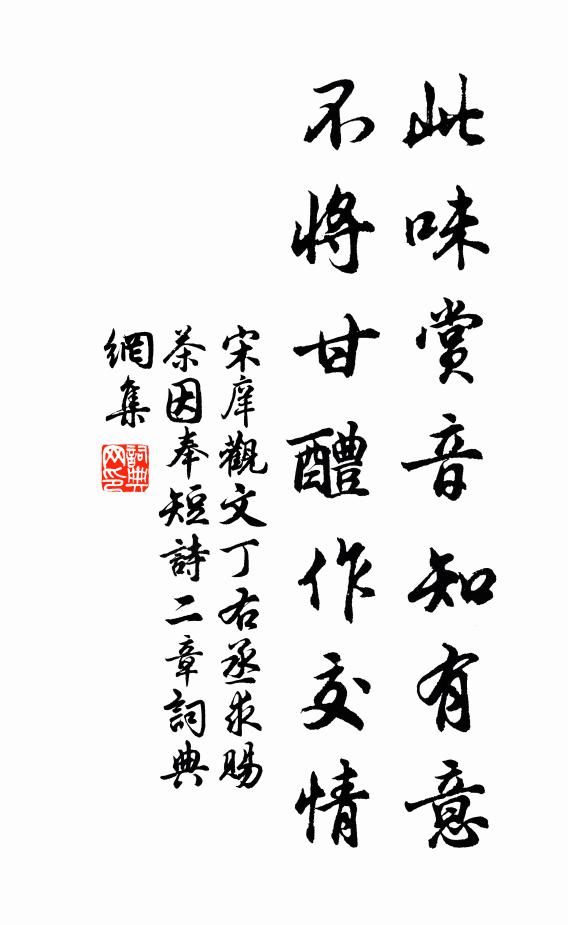 此味賞音知有意
不將甘醴作交情
宋庠觀文丁右丞求賜
茶因奉短詩二章詞典
網集
詞典
网印